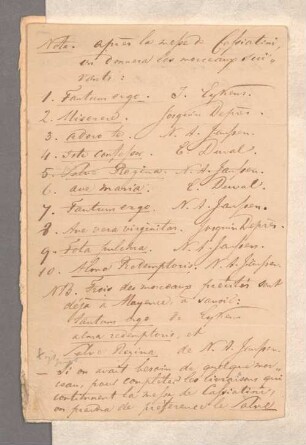 Nota. après la messe de Casciolini,
on donnera les morceaux sui-
vants :
1. Tantum ergo. J. Eykens.
2. Miserere. Josquin Deprès.
3. Adoro te. N. A. Janssen.
4. E. Duval.
5. Salve Regina. N. A. Janssen.
6. ave maria. E. Duval.
7. Tantum ergo. N. A. Janssen.
8. Ave vera virginitas. Josquin Deprès.
9. Tota pulchra. N. A. Janssen.
10. Alma Redemptoris. N. A. Janssen.
NB. Trois des morceaux précités sont
déjà à Mayence, à savoir :
Tantum ergo de Eykens
alma redemptoris, et
Salve Regina de N. A. Janssen.
Si on avait besoin de quelque mor-
ceau, pour compléter les livraisons qui
contiennent la messe de Casciolini,
on prendra de préférence le Salve